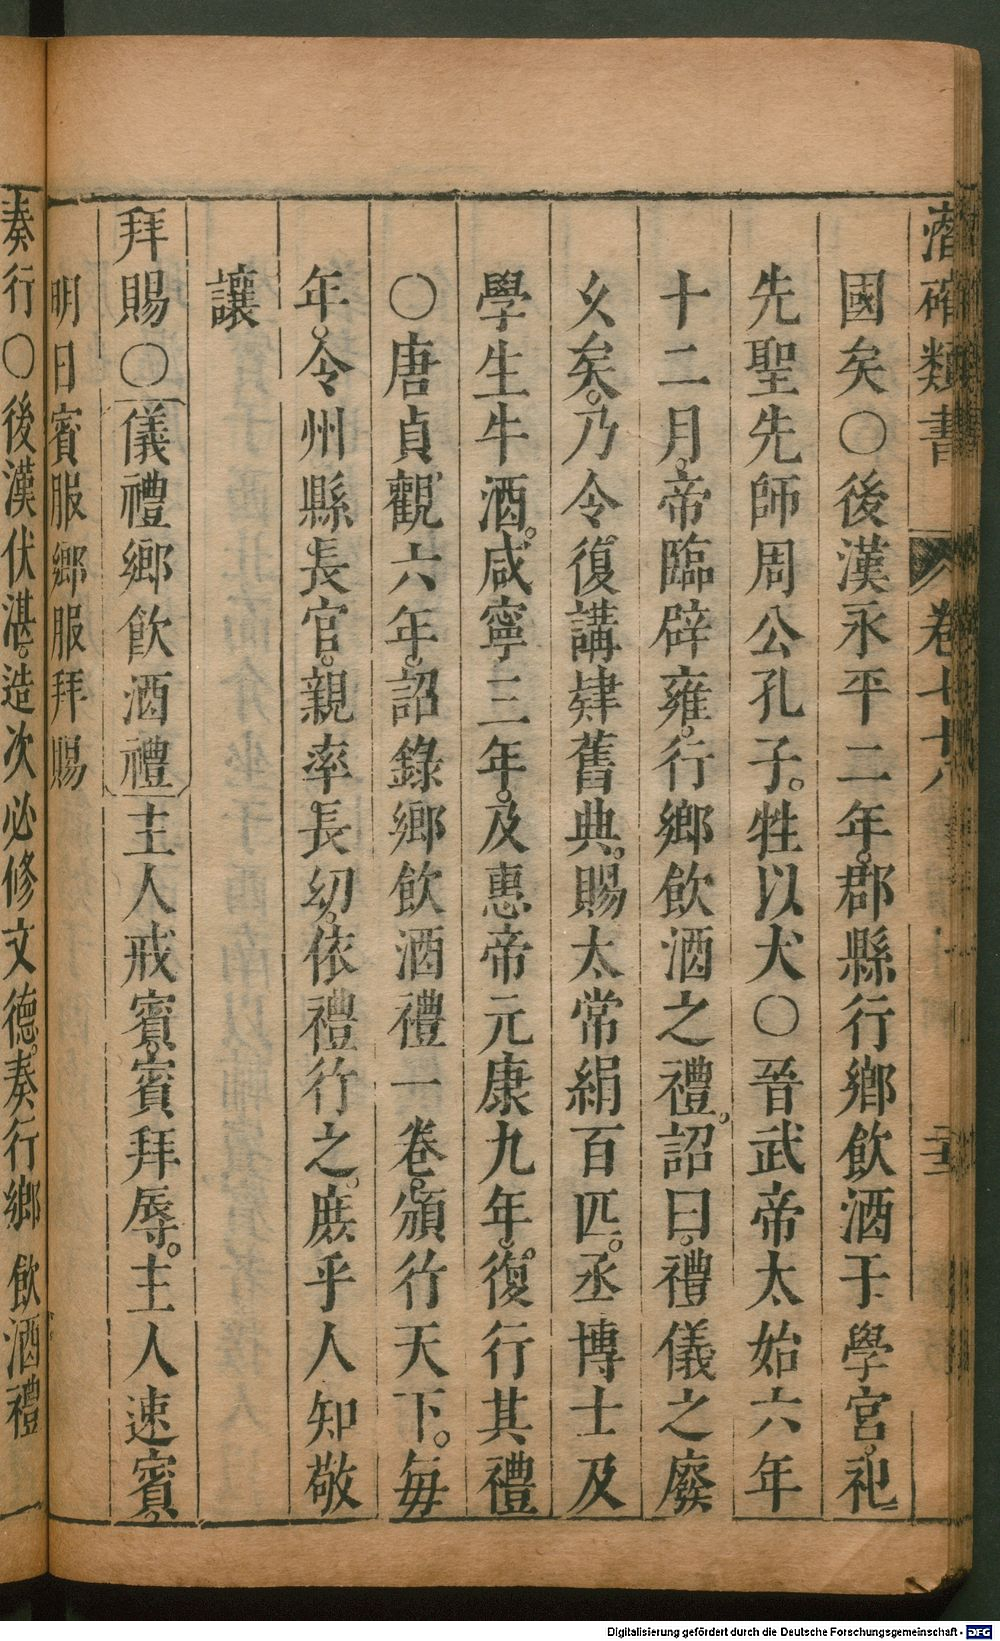 潛確類書 卷七十八 二十五
國矣〇後漢永平二年。郡縣行鄉飲酒于學宮。祀
先聖先師周公孔子。牲以犬〇晉武帝太始六年
十二月。帝臨辟雍。行鄉飲酒之禮。詔曰。禮儀之廢
久矣。乃令復講肄舊典。賜太常絹百匹。丞博士及
學生牛酒。咸寧三年。及惠帝元康九年。復行其禮
〇唐貞觀六年。詔錄鄉飲酒禮一卷。頒行天下。每
年。令州縣長官。親率長幼。依禮行之。庶乎人知敬
讓
拜賜〇儀禮鄉飲酒禮主人戒賓。賓拜辱。主人速賓。
明日賓服鄉服拜賜
奏行〇後漢伏湛。造次必修文德。奏行鄉飲酒禮
Digitalisierung gefördert durch die Deutsche Forschungsgemeinschaft - DFG